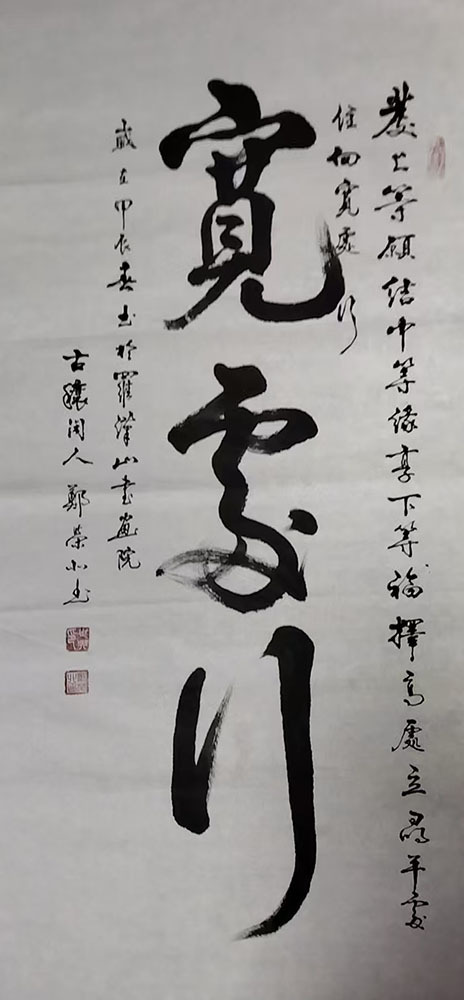 發上等願結中等緣享下等福擇高處立尋平處
住向寬處行
寬處行
歲在甲辰春書於羅篷山書畫院
古穰閑人鄭榮小書